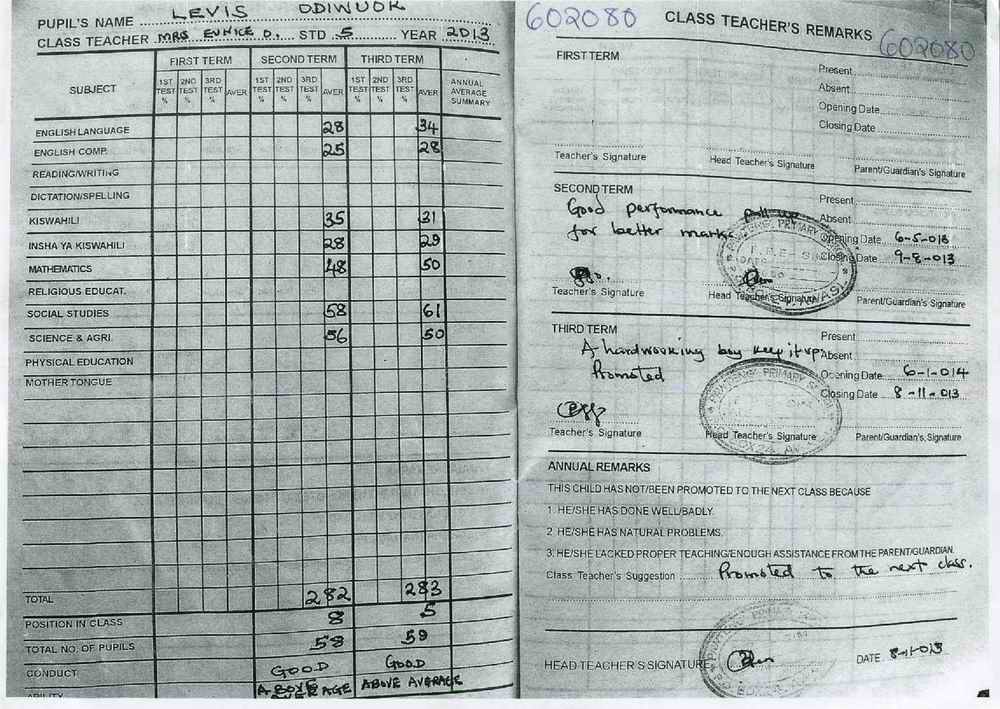 PUPIL'S NAME LEVIS ODIWUOR
CLASS TEACHER MRS EUNICE O. STD 5 YEAR 2013
SUBJECT FIRST TERM SECOND TERM THIRD TERM ANNUAL AVERAGE SUMMARY
1ST TEST % 2ND TEST % 3RD TEST % AVER 1ST TEST % 2ND TEST % 3RD TEST % AVER 1ST TEST % 2ND TEST % 3RD TEST % AVER
ENGLISH LANGUAGE 28 34
ENGLISH COMP. 25 28
READING/WRITING
DICTATION/SPELLING
KISWAHILI 35 31
INSHA YA KISWAHILI 28 29
MATHEMATICS 48 50
RELIGIOUS EDUCAT.
SOCIAL STUDIES 58 61
SCIENCE & AGRI. 56 50
PHYSICAL EDUCATION
MOTHER TONGUE
TOTAL 282 283
POSITION IN CLASS 8 5
TOTAL NO. OF PUPILS 58 59
CONDUCT GOOD GOOD
ABILITY ABOVE AVERAGE ABOVE AVERAGE
602080 CLASS TEACHER'S REMARKS 602080
FIRST TERM
Present
Absent
Opening Date
Closing Date
Teacher's Signature Head Teacher's Signature Parent/Guardian's Signature
SECOND TERM
Present
Good performance pull up Absent
for better marks. Opening Date 6-5-013
Closing Date 9-8-013
Teacher's Signature Head Teacher's Signature Parent/Guardian's Signature
THIRD TERM
Present
A hardworking boy keep it up Absent
Promoted Opening Date 6-1-014
Closing Date 8-11-013
PRIMARY
Teacher's Signature Head Teacher's Signature Parent/Guardian's Signature
ANNUAL REMARKS
THIS CHILD HAS NOT/BEEN PROMOTED TO THE NEXT CLASS BECAUSE
1. HE/SHE HAS DONE WELL/BADLY.
2. HE/SHE HAS NATURAL PROBLEMS.
3. HE/SHE LACKED PROPER TEACHING/ENOUGH ASSISTANCE FROM THE PARENT/GUARDIAN.
Class Teacher's Suggestion Promoted to the next class.
HEAD TEACHER'S SIGNATURE DATE 8-11-013